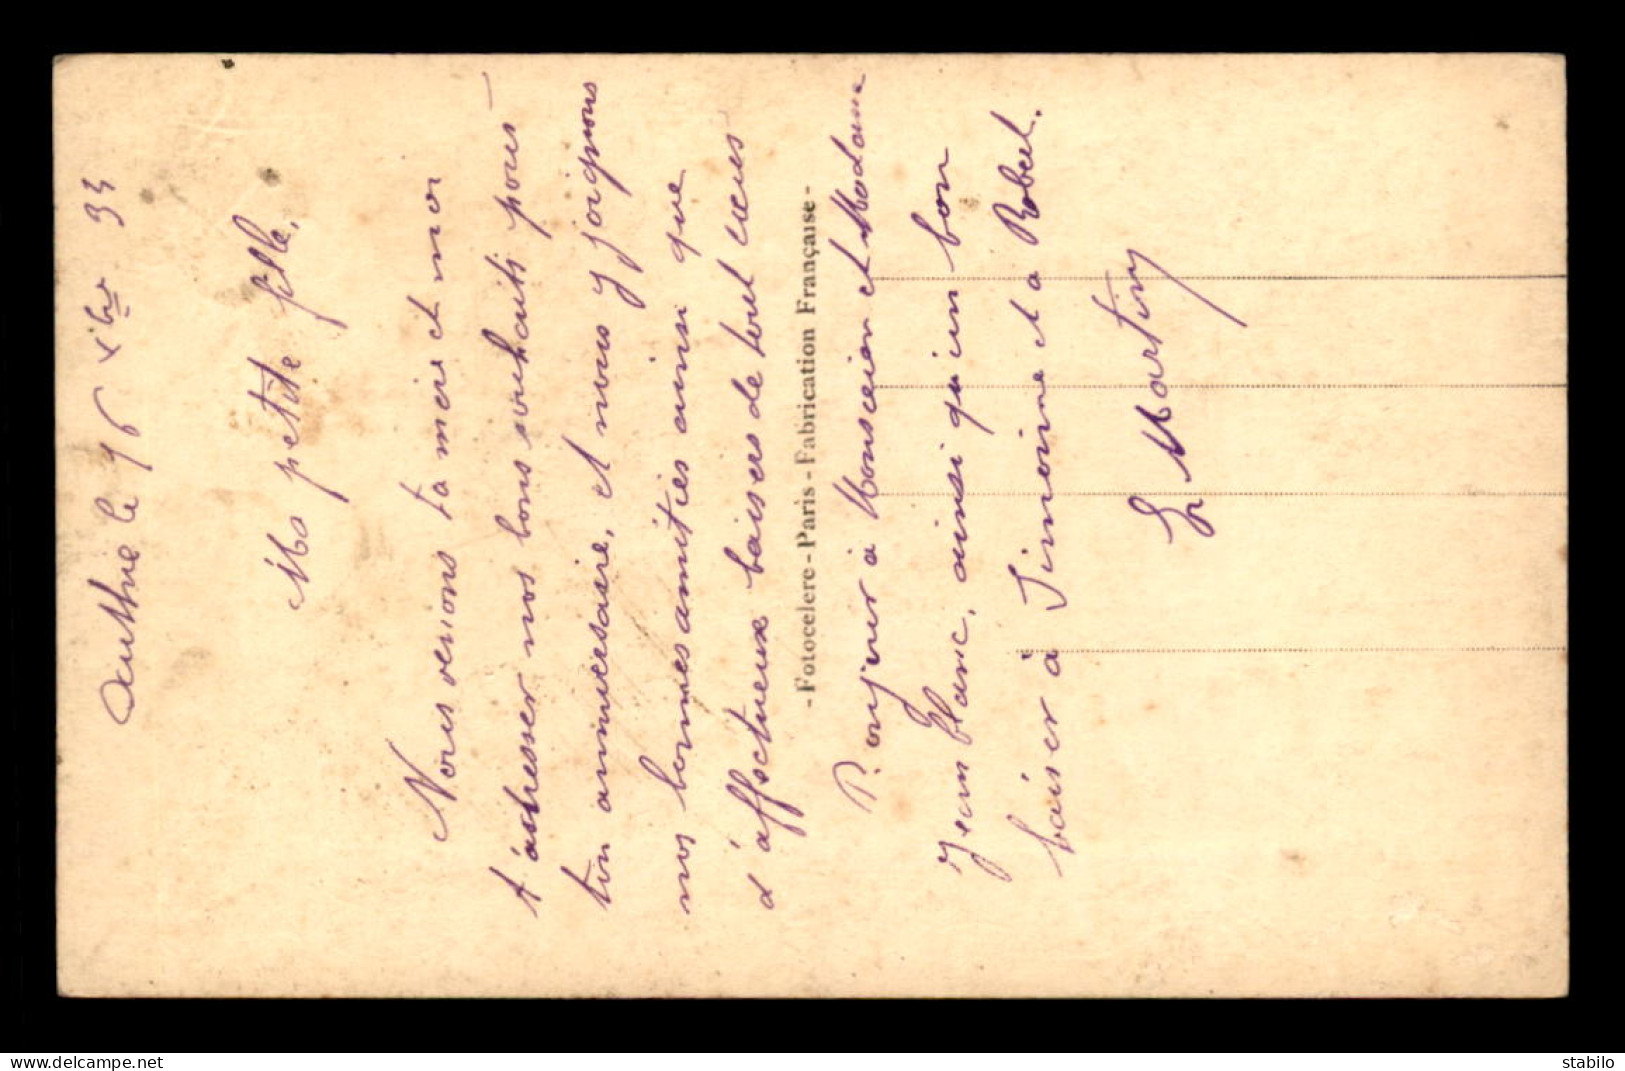 Authie le 96 Xbre 33
Ma petite fille,
Nous venons ta mère et moi
t'adresser nos bons souhaits pour
ton anniversaire, et nous y joignons
nos bonnes amitiés ainsi que
d'affectueux baisers de tout cœurs
- Fotocelere - Paris - Fabrication Française -
Bonjour à Monsieur et Madame
Jean blanc, ainsi qu'un bon
baiser à Simonne et a Robert.
Martin
www.delcampe.net
stabilo